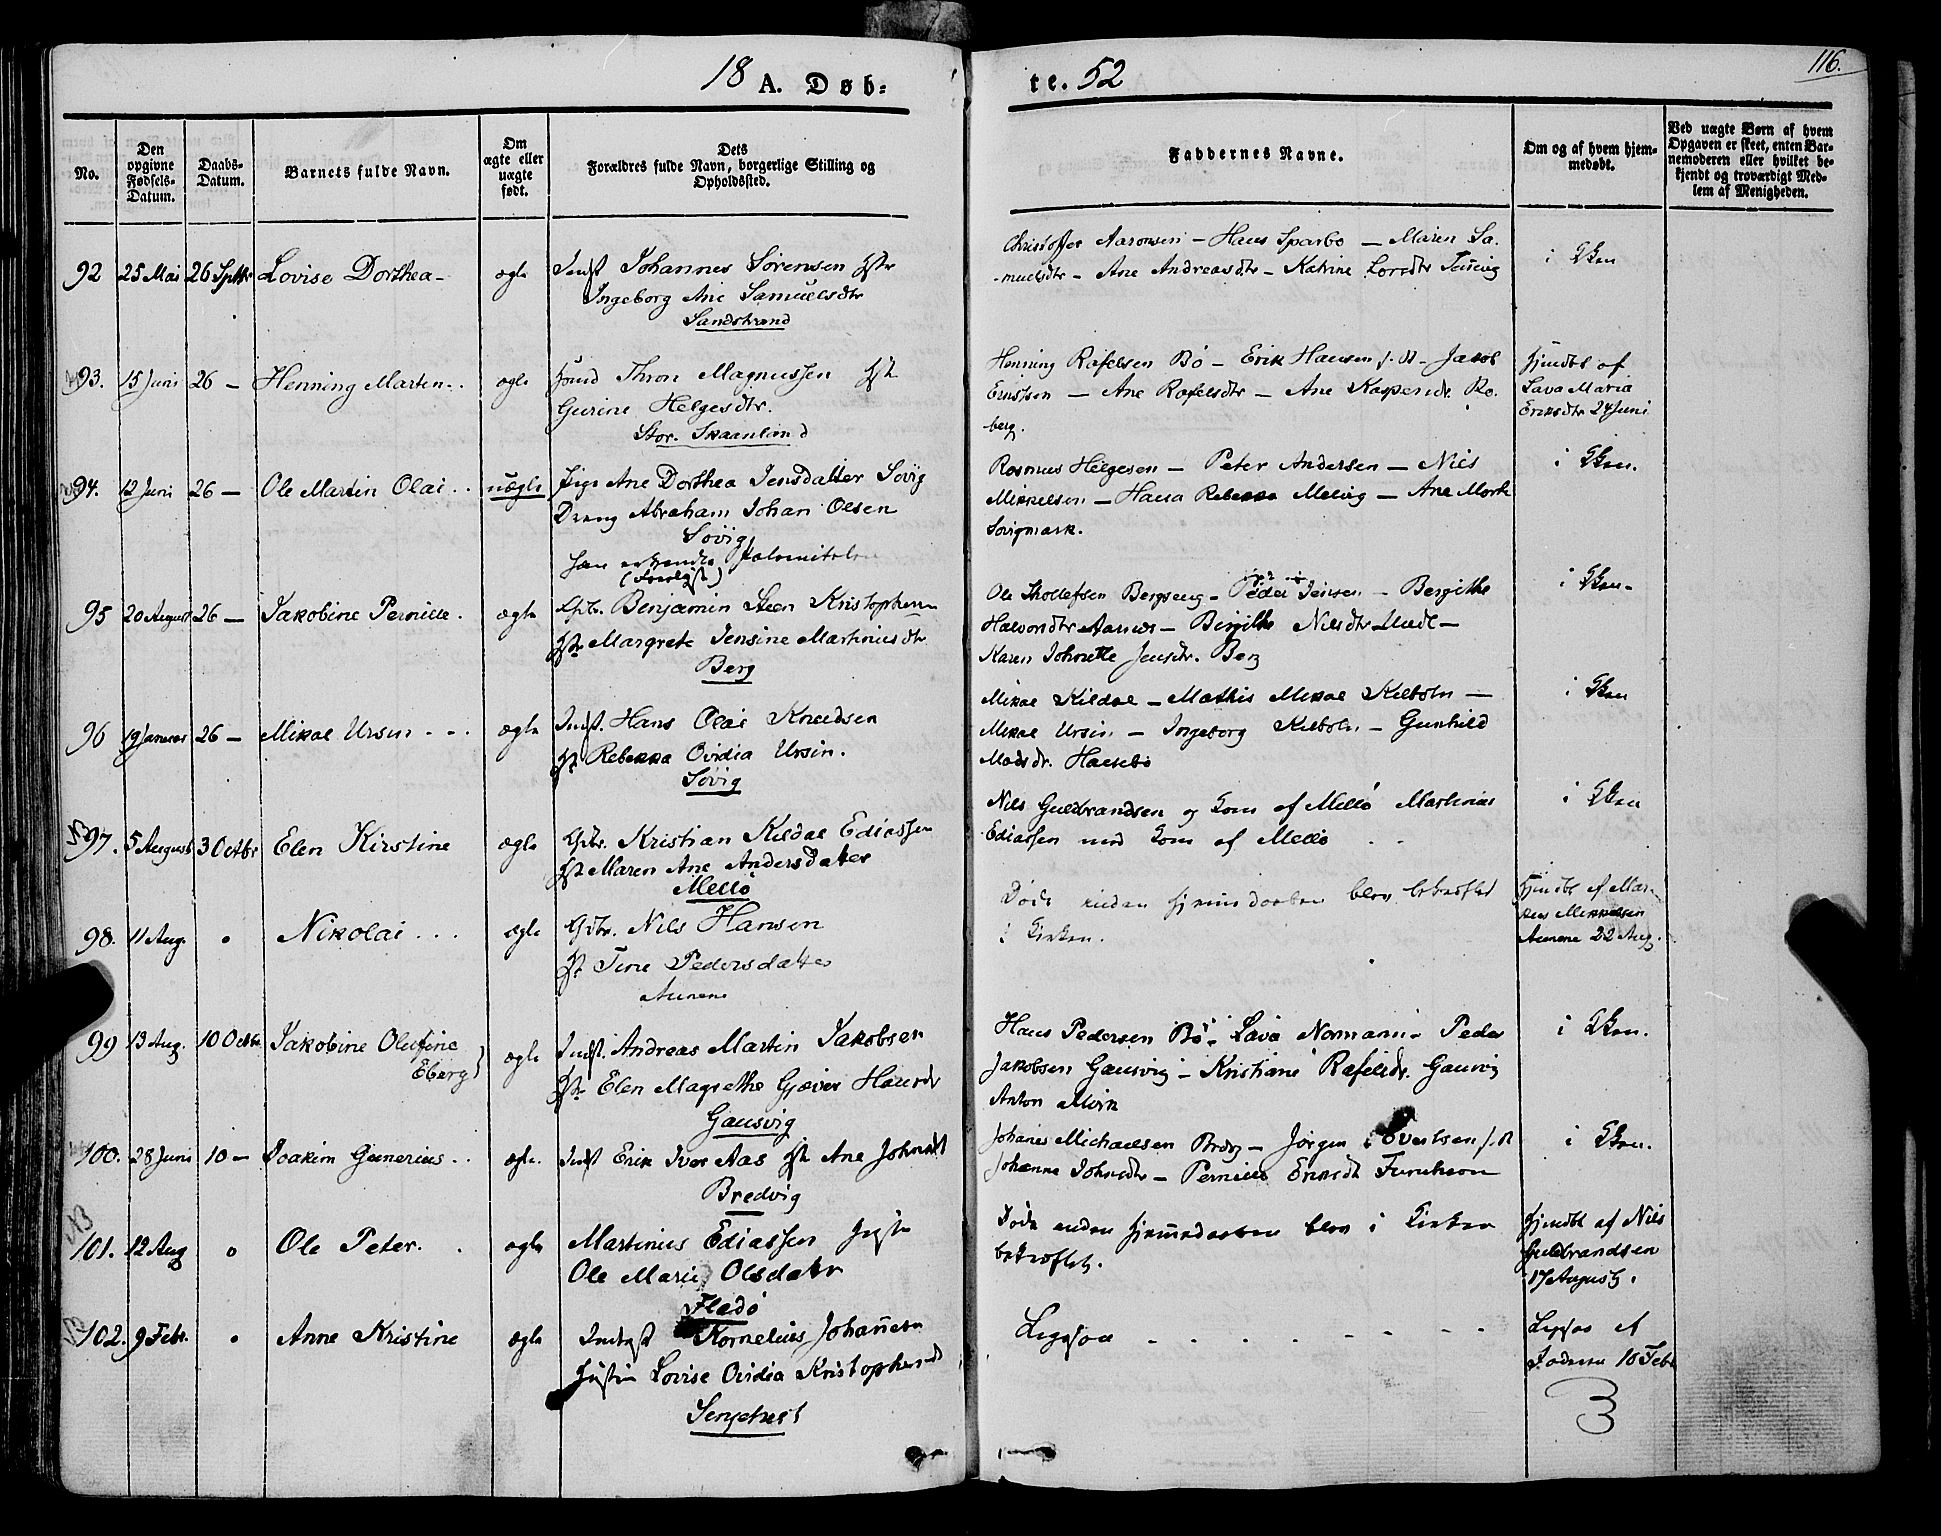 18 A. Døb= te. 52
116.
No.
Den opgivne Fødsels-Datum.
Daabs-Datum.
Barnets fulde Navn.
Om ægte eller uægte født.
Dets Forældres fulde Navn, borgerlige Stilling og Opholdssted.
Faddernes Navne.
Om og af hvem hjem-medøbt.
Ved uægte Børn af hvem Opgaven er skeet, enten Bar-nemoderen eller hvilket be-kjendt og troværdigt Med-lem af Menigheden.
92 25 Mai 26 Septbr Lovise Dorthea - ægte Indst Johannes Sørensen Hstr
Ingeborg Ane Samuelsdtr
Sandstrand
Christoffer Aaronsen - Hans Sparbo - Maren Sa-
muelsdtr - Ane Andreasdtr - Katrine Lorsdtr
i Kken
93. 15 Juni 26 - Henning Marten - . ægte Thron Magnussen Hst
Gurine Helgesdtr.
Stor. Skaanland
Henning Rafelsen Bö - Erik Hansen s. st - Jakob
Ernstsen - Ane Rafelsdtr - Ane Kaspersdtr Ro-
berg.
hjmdbt af
Lava Maria
Eriksdtr 24 Juni
94. 12 Juni 26 - Ole Martin Olai . . uægte Pige Ane Dorthea Jensdatter Sövig
Dreng Abraham Johan Olsen
Sövig
Rasmus Helgesen - Peter Andersen - Nils
Mikkelsen - Hana Rebekka Melvig - Ane Marte
Sovigmark.
i Kken.
95 20 August 26 - Jakobine Pernille . ægte Gbr. Benjamin Steen Kristophersen
Hst Margrete Jensine Martinusdtr
Berg
Ole Thollefsen Bergseng - Peder Jensen - Bergithe
Halvordtr Aarnes - Birgitte Nilsdtr
Karen Johnette Jensdtr. Berg
i Kken -
96 19 Januar 26 - Mikal Ursin - - - ægte Indst. Hans Olai Knudsen
Hst Rebekka Ovidia Ursin.
Sövig
Mikal Kildal - Mathis Mikal Kilboln -
Mikal Ursin - Ingeborg Kilboln - Gunhild
Madsdr.
i Kken
NB 97. 5 August 3 Octbr Elen Kirstine ægte Gbr. Kristian Kildal Ediassen
Hst Maren Ane Andersdatter
Mellö
Nils Guldbrandsen og Kone af Mellö Martinus
Ediassen med Kone af Mellö . .
i Kken
98. 11 Aug. " Nikolai . . . ægte Gbr. Nils Hansen
Hst Tine Pedersdatter
Aunene
Døde inden hjemmedaaben blev bekræftet
i Kirken.
hjmdbt af Mar-
Mikkelsen
Aunene 22 Aug.
99 13 Aug. 10 Octbr Jakobine Olufine
Eberg ægte Indst. Andreas Martin Jakobsen
Hst Elen Magrethe Gjæver Hansdr
Gausvig
Hans Pedersen Bö - Lava Normann - Peder
Jakobsen Gausvig - Kristiane Rafelsdr. Gausvig
Anton Alvik
i Kken.
100. 28 Juni 10 - Joakim Gunerius . . ægte. Indst Erik Iver Aas Hst Ane Johnsdt
Bredvig
Johanes Michaelsen - Jörgen Evertsen s. st
Johanna Johnsdtr - Pernille Eriksdt
i Kken.
NB
101. 12 Aug " Ole Peter. . ægte Martinus Ediassen
Ole Marie Olsdatr
Fladö
Døde inden hjemmedaaben blev i Kirken
bekræftet.
hjmdbt af Nils
Guldbrandsen
17 August.
NB
102. 9 Febr. " Anne Kristine ægte Indst Kornelius Johansen
Lovise Ovidia Kristophersdt
Ligesaa - - - - - - -
Ligesaa af
Faderen 10 Febr